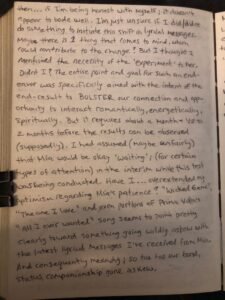 then... if I'm being honest with myself; it doesn't
appear to bode well. I'm just unsure if I did/didn't
do something to initiate this shift in lyrical messages.
Maybe there is 1 thing that comes to mind, which
could contribute to the change? But I thought I
mentioned the necessity of the 'experiment' to her,
Didn't I? The entire point and goal for such an end-
eavor was specifically aimed with the intent of the
end-results to BOLSTER our connection and opp-
ortunity to interact romantically, energetically,
spiritually. But it requires about a month 1/2 to
2 months before the results can be observed
(supposedly). I had assumed (maybe unfairly)
that Mia would be okay 'waiting'; (for certain
types of attention) in the interim while this test
was being conducted. Have I.... overextended my
optimism regarding Mia's patience? "Wicked Game",
"The one I love" and even portions of Prima Vera's
"All I ever wanted" song seems to point pretty
clearly toward something going wildly askew with
the latest lyrical messages I've received from Mia.
And consequently meaning; so too has our bond,
status, companionship gone askew.